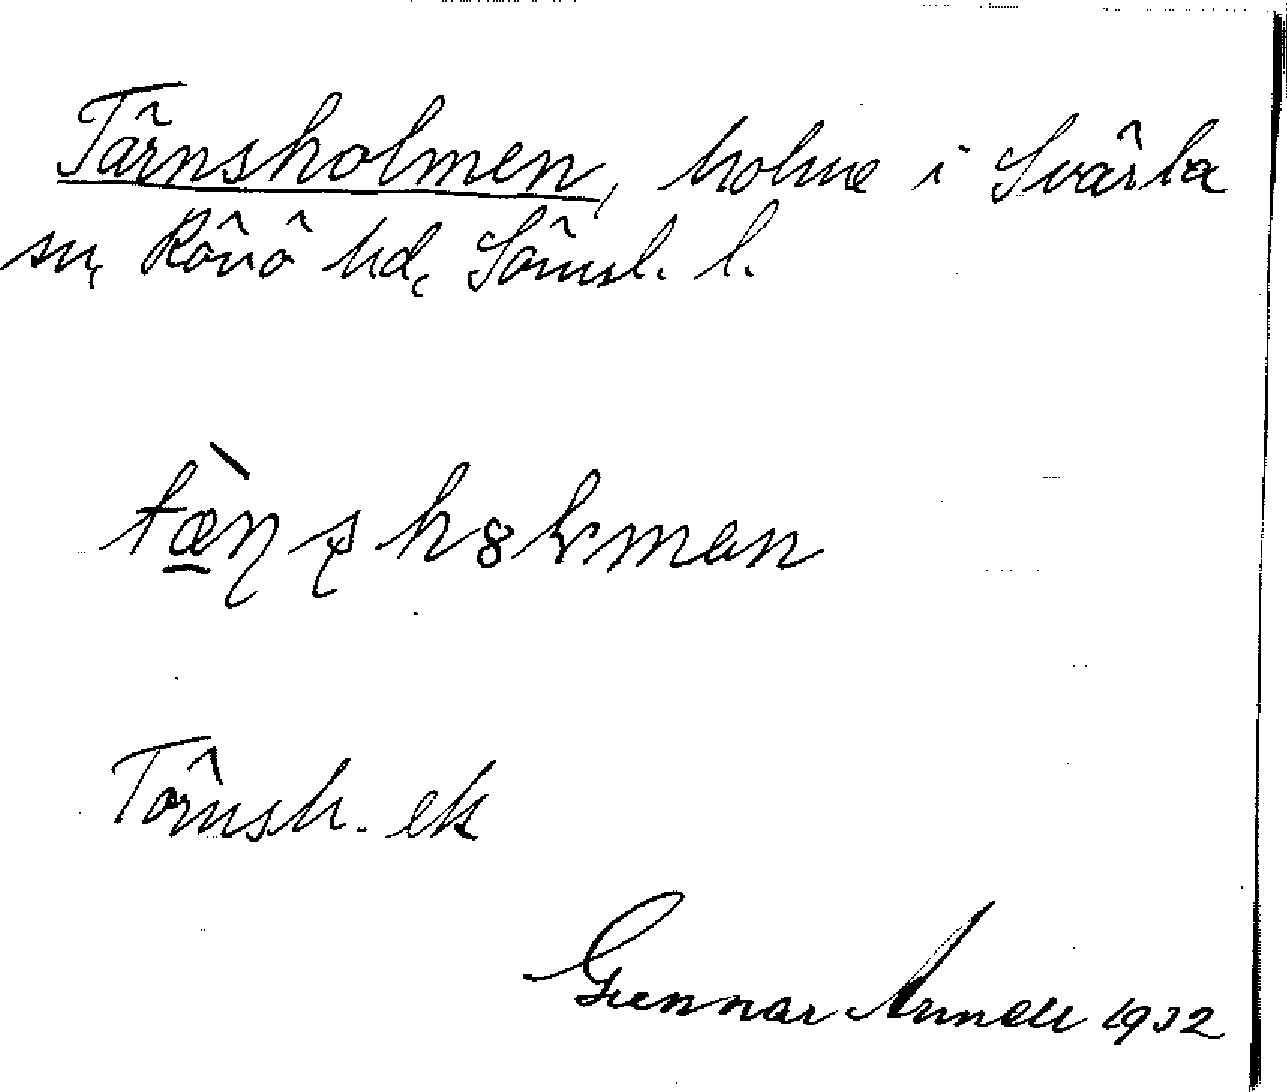 Tärnsholmen, holme i Svärta
sn, Rönö hd, Söml. l.
tæ̀ṇṣh8lman
Törnsh. ek
Gunnar Arnell 1932